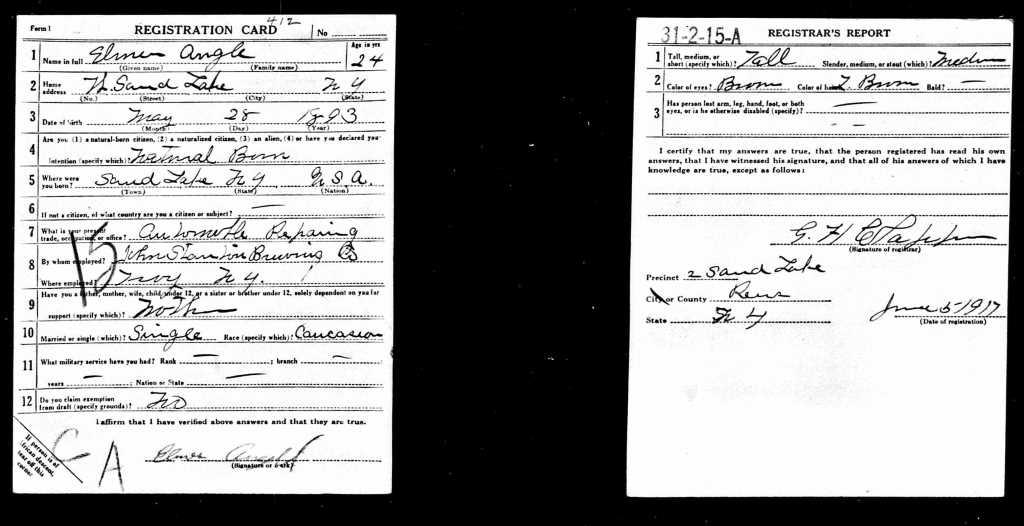 412
Form 1 REGISTRATION CARD No
1 Name in full Elmer Angle Age in yrs 24
(Given name) (Family name)
2 Home address W. Sand Lake N Y
(No.) (Street) (City) (State)
3 Date of birth May 28 1893
(Month) (Day) (Year)
4 Are you (1) a natural-born citizen, (2) a naturalized citizen, (3) an alien, (4) or have you declared your
intention (specify which)? Natural Born
5 Where were you born? Sand Lake N Y U.S.A.
(Town) (State) (Nation)
6 If not a citizen, of what country are you a citizen or subject? —
7 What is your present trade, occupation, or office? Automobile Repairing
8 By whom employed? John Stanton Brewing Co
Where employed? Troy N.Y.
9 Have you a father, mother, wife, child under 12, or a sister or brother under 12, solely dependent on you for
support (specify which)? Mother
10 Married or single (which)? Single Race (specify which)? Caucasian
11 What military service have you had? Rank — ; branch —
years — ; Nation or State —
12 Do you claim exemption from draft (specify grounds)? No
I affirm that I have verified above answers and that they are true.
Elmer Angle
(Signature or mark)
If person is of
African descent,
tear off this
corner
C A
15
31-2-15-A REGISTRAR'S REPORT
1 Tall, medium, or short (specify which)? Tall Slender, medium, or stout (which)? Medium
2 Color of eyes? Brown Color of hair? L. Brown Bald? —
3 Has person lost arm, leg, hand, foot, or both
eyes, or is he otherwise disabled (specify)? —
— —
I certify that my answers are true, that the person registered has read his own
answers, that I have witnessed his signature, and that all of his answers of which I have
knowledge are true, except as follows:
G. H.
(Signature of registrar)
Precinct 2 Sand Lake
City or County Rens
State N Y
June 5-1917
(Date of registration)